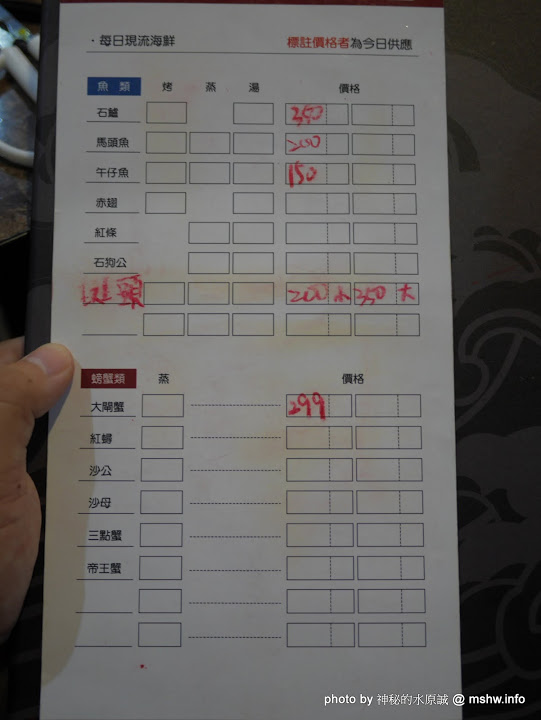 ．每日現流海鮮 標註價格者為今日供應
魚 類 烤 蒸 湯 價格
石鱸 350
馬頭魚 200
午仔魚 150
赤翅
紅條
石狗公
紅頭 200 小 350 大
螃蟹類 蒸 價格
大閘蟹 299
紅蟳
沙公
沙母
三點蟹
帝王蟹
photo by 神秘的水原誠 @ mshw.info